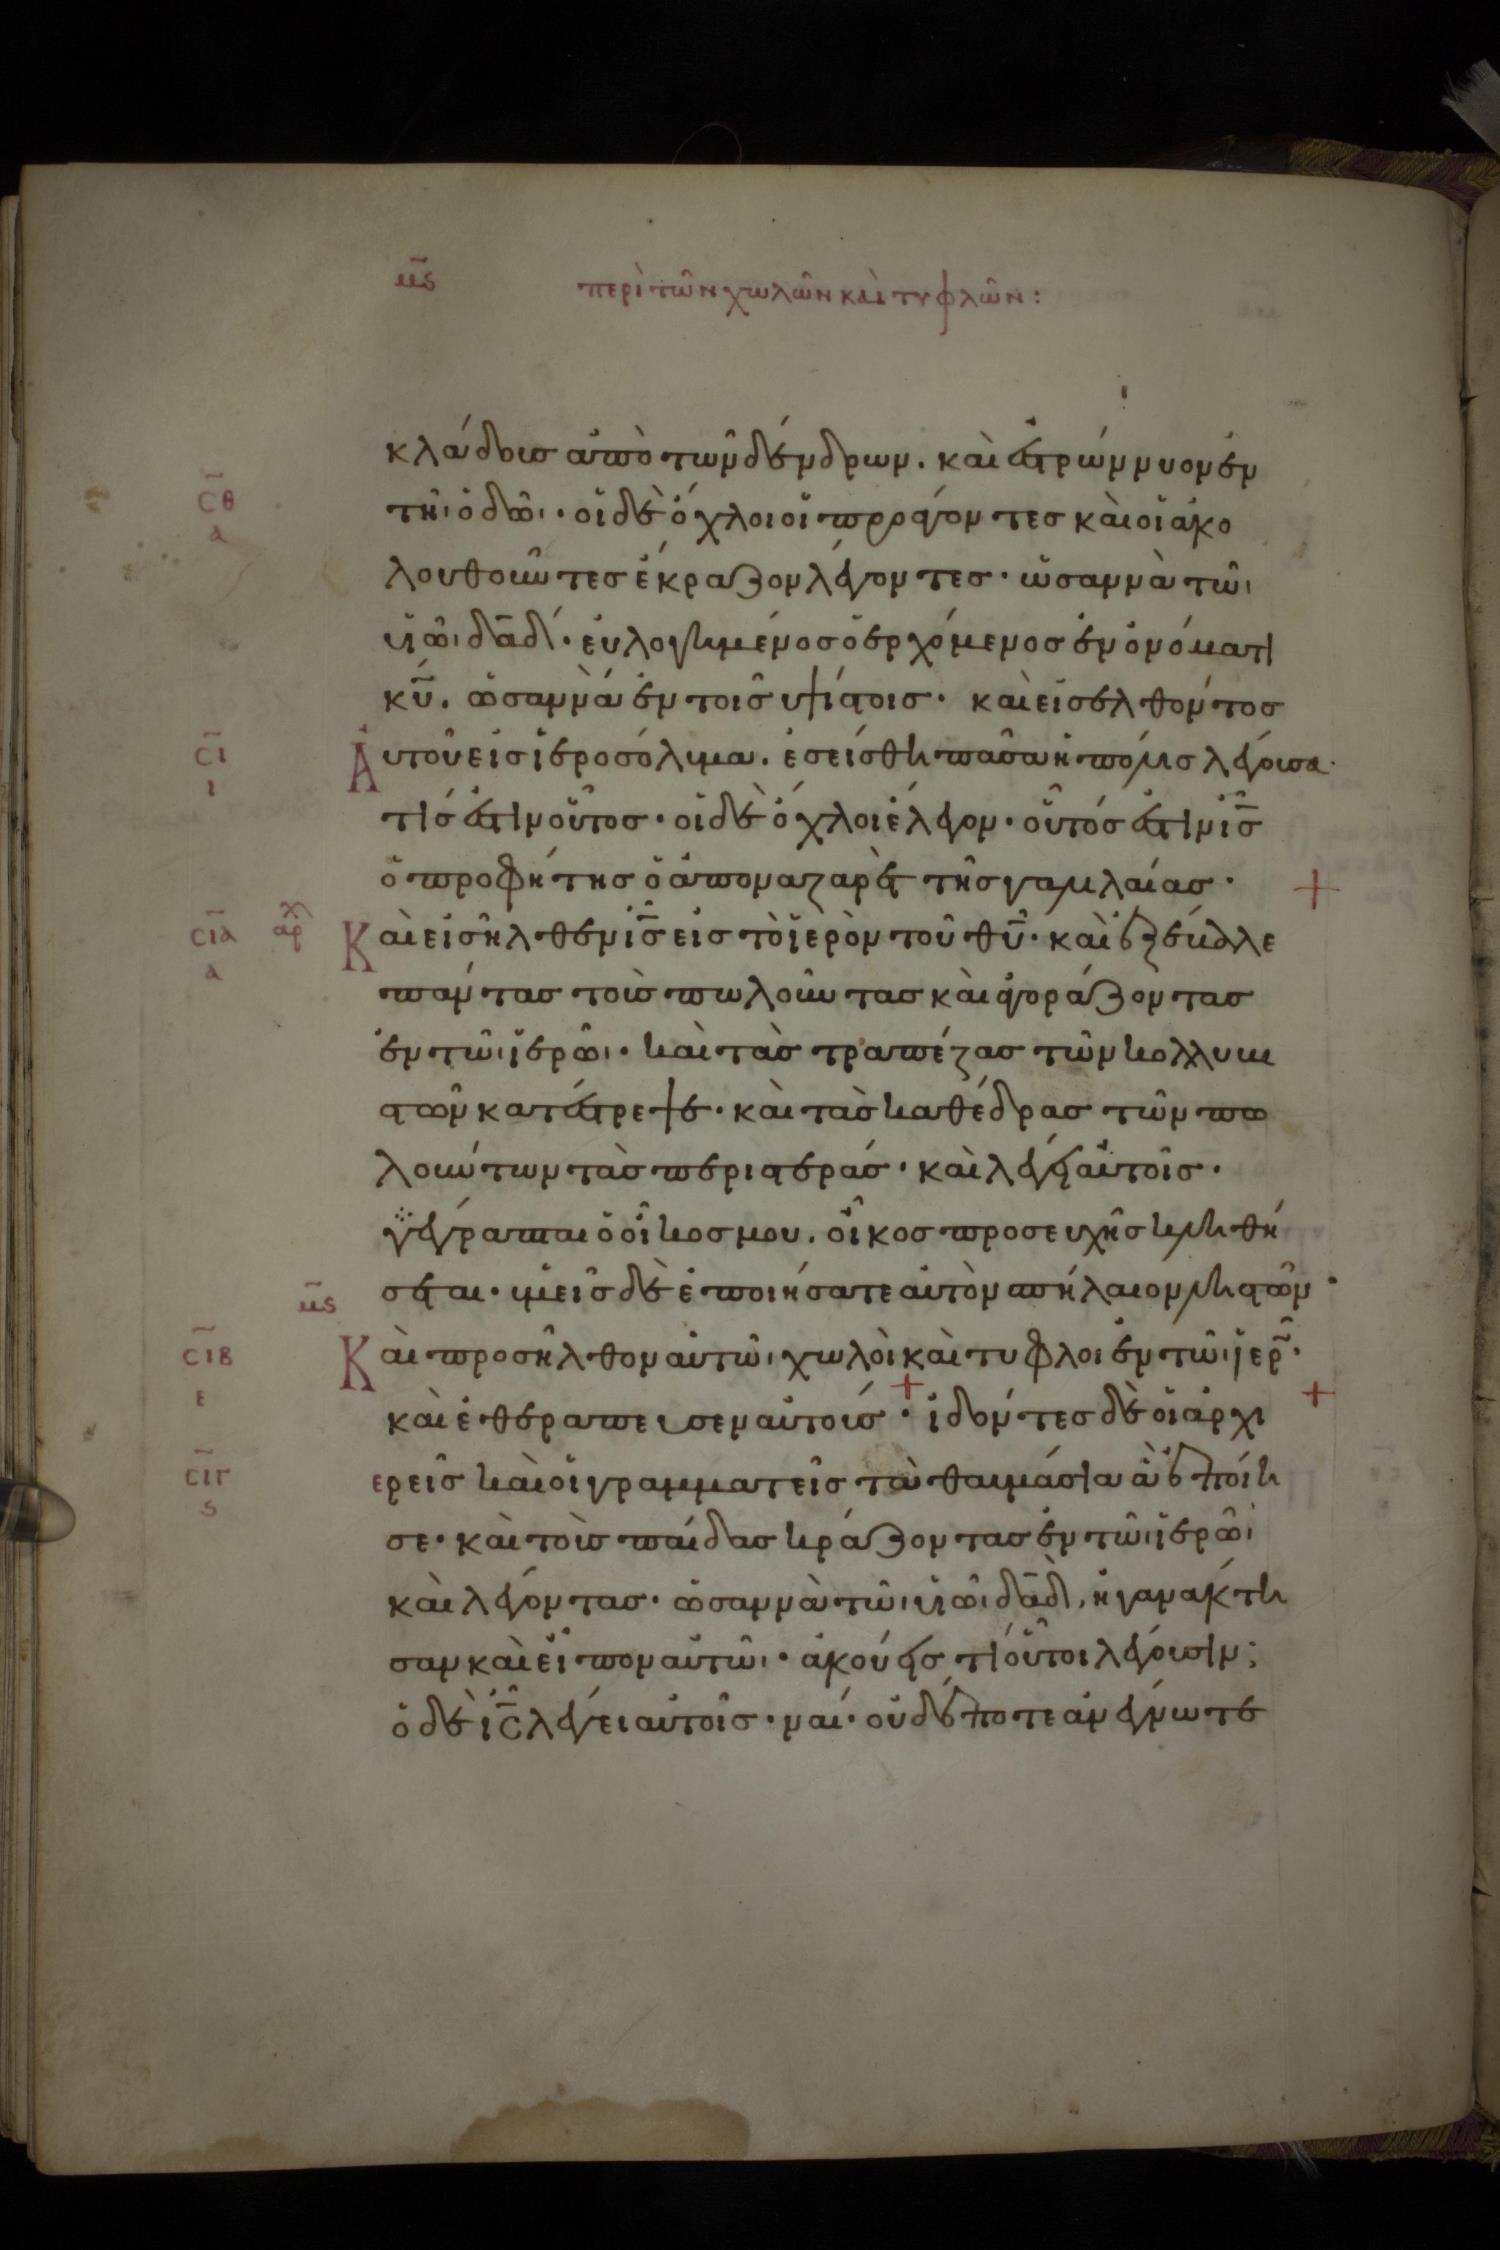 μ̅ϛ περὶ τῶν χωλῶν καὶ τυφλῶν :
κλάδους ἀπὸ τῶν δένδρων. καὶ ἐστρώννυον ἐν
σ̅θ α
τῆι ὁδῶι· οἱ δὲ ὄχλοι οἱ προάγοντες καὶ οἱ ἀκο
λουθοῦντες ἔκραζον λέγοντες· ὡσαννὰ τῶι
υἱῶι δα̅δ· εὐλογημένος ὁ ἐρχόμενος ἐν ὀνόματι
κ̅υ. ὡσαννὰ ἐν τοῖς ὑψίστοις· καὶ εἰσελθόντος
σ̅ι ι
Αὐτοῦ εἰς ἱεροσόλυμα. ἐσείσθη πᾶσα ἡ πόλις λέγουσα·
τίς ἐστιν οὗτος· οἱ δὲ ὄχλοι ἔλεγον· οὗτός ἐστιν ι̅ς
ὁ προφήτης ὁ ἀπὸ ναζαρὲτ τῆς γαλιλαίας· +
σ̅ι̅α α αρχ
Καὶ εἰσῆλθεν ι̅ς εἰς τὸ ἱερὸν τοῦ θ̅υ· καὶ ἐξέβαλε
πάντας τοὺς πωλοῦντας καὶ ἀγοράζοντας
ἐν τῶι ἱερῶι· καὶ τὰς τραπέζας τῶν κολλυβι
στῶν κατέστρεψε· καὶ τὰς καθέδρας τῶν πω
λούντων τὰς περιστεράς· καὶ λέγει αὐτοῖς·
γέγραπται ὁ οἶκος μου. οἶκος προσευχῆς κληθή
σεται· ὑμεῖς δὲ ἐποιήσατε αὐτὸν σπήλαιον ληστῶν·
μ̅ϛ
σ̅ι̅β ε
Καὶ προσῆλθον αὐτῶι χωλοὶ καὶ τυφλοὶ ἐν τῶι ἱερ̅·
καὶ ἐθεράπευσεν αὐτούς +· ἰδόντες δὲ οἱ ἀρχι +
σ̅ι̅γ ϛ
ερεῖς καὶ οἱ γραμματεῖς τὰ θαυμάσια ἃ ἐποίη
σε· καὶ τοὺς παῖδας κράζοντας ἐν τῶι ἱερῶι
καὶ λέγοντας· ὡσαννὰ τῶι υἱῶι δα̅δ, ἠγανάκτη
σαν καὶ εἶπον αὐτῶι· ἀκούεις τί οὗτοι λέγουσιν;
ὁ δὲ ι̅ς λέγει αὐτοῖς· ναί· οὐδέποτε ἀνέγνωτε